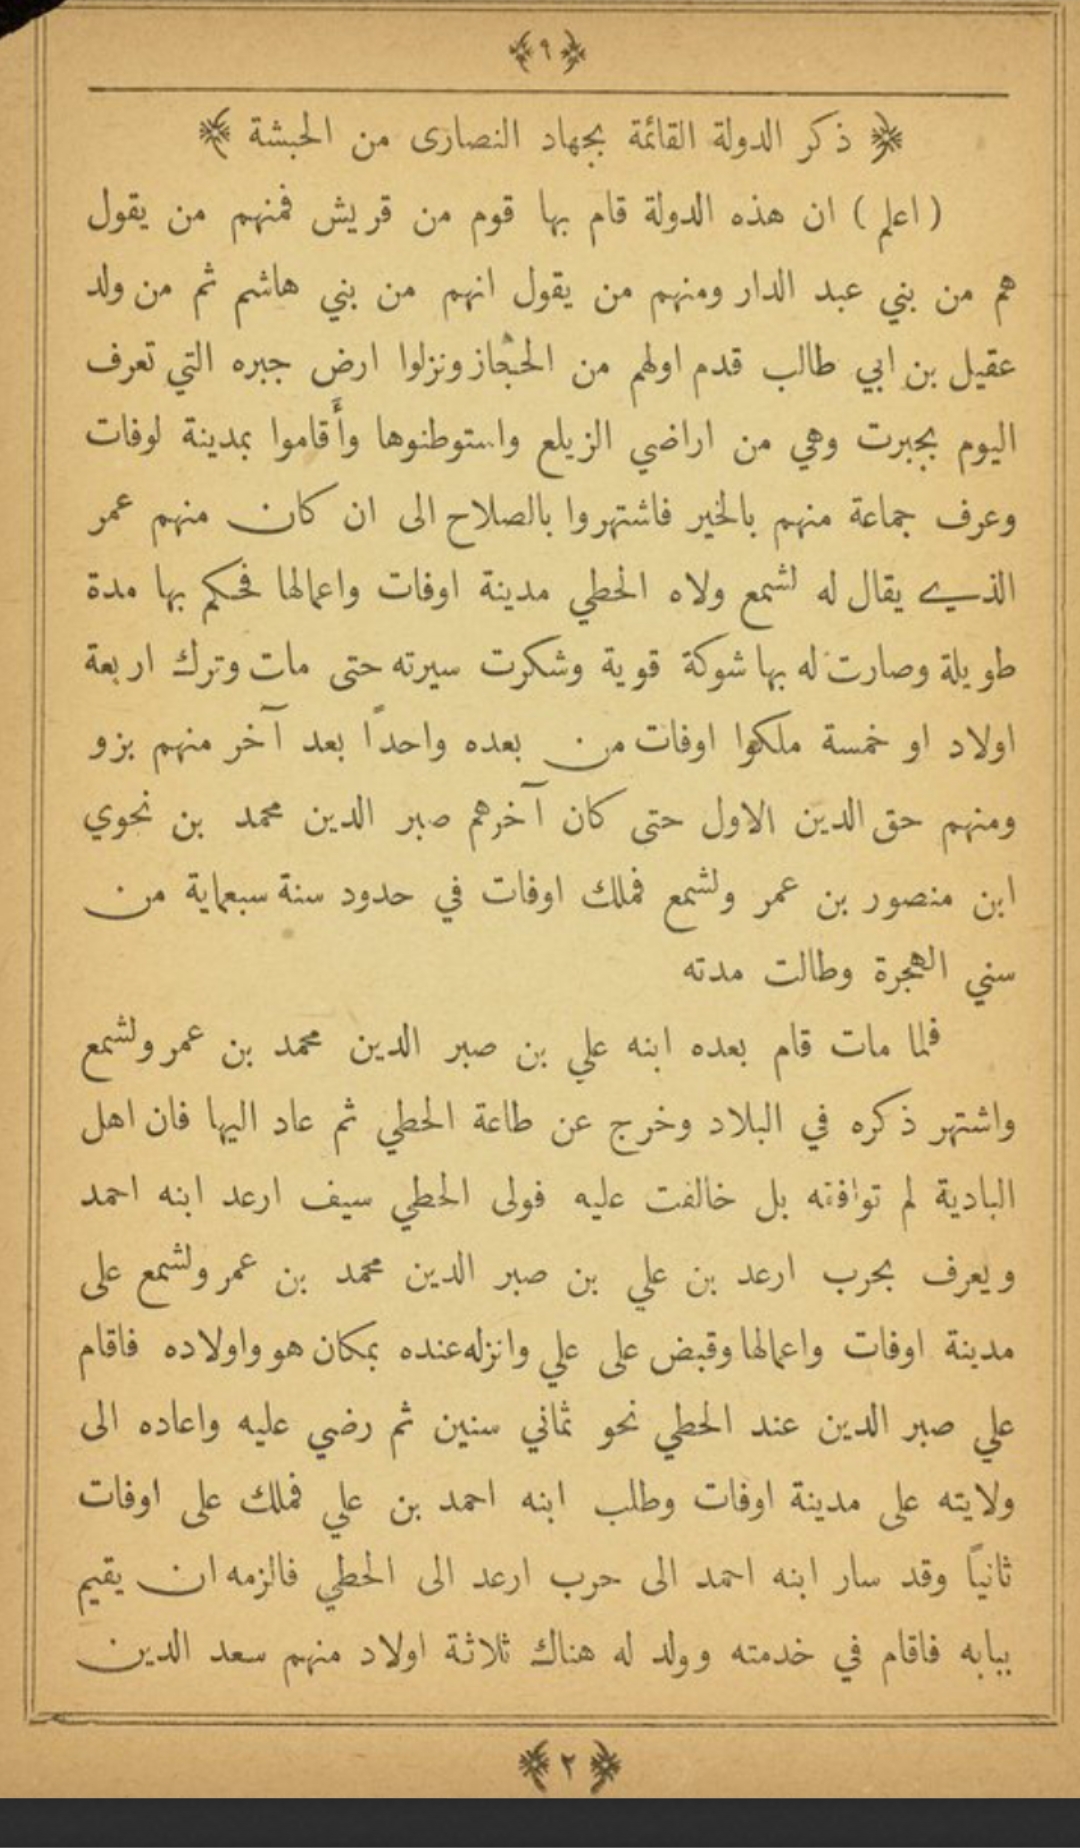 ﴿ ٩ ﴾
﴿ ذكر الدولة القائمة بجهاد النصارى من الحبشة ﴾
( اعلم ) ان هذه الدولة قام بها قوم من قريش فمنهم من يقول
هم من بني عبد الدار ومنهم من يقول انهم من بني هاشم ثم من ولد
عقيل بن ابي طالب قدم اولهم من الحجاز ونزلوا ارض جبره التي تعرف
اليوم بجبرت وهي من اراضي الزيلع واستوطنوها وأقاموا بمدينة لوفات
وعرف جماعة منهم بالخير فاشتهروا بالصلاح الى ان كان منهم عمر
الذي يقال له لشمع ولاه الحطي مدينة اوفات واعمالها فحكم بها مدة
طويلة وصارت له بها شوكة قوية وشكرت سيرته حتى مات وترك اربعة
اولاد او خمسة ملكوا اوفات من بعده واحداً بعد آخر منهم بزو
ومنهم حق الدين الاول حتى كان آخرهم صبر الدين محمد بن نحوي
ابن منصور بن عمر ولشمع فملك اوفات في حدود سنة سبعماية من
سني الهجرة وطالت مدته
فلما مات قام بعده ابنه علي بن صبر الدين محمد بن عمر ولشمع
واشتهر ذكره في البلاد وخرج عن طاعة الحطي ثم عاد اليها فان اهل
البادية لم توافقه بل خالفت عليه فولى الحطي سيف ارعد ابنه احمد
ويعرف بحرب ارعد بن علي بن صبر الدين محمد بن عمر ولشمع على
مدينة اوفات واعمالها وقبض على علي وانزله عنده بمكان هو واولاده فاقام
علي صبر الدين عند الحطي نحو ثماني سنين ثم رضي عليه واعاده الى
ولايته على مدينة اوفات وطلب ابنه احمد بن علي فملك على اوفات
ثانياً وقد سار ابنه احمد الى حرب ارعد الى الحطي فالزمه ان يقيم
ببابه فاقام في خدمته وولد له هناك ثلاثة اولاد منهم سعد الدين
﴿ ٢ ﴾